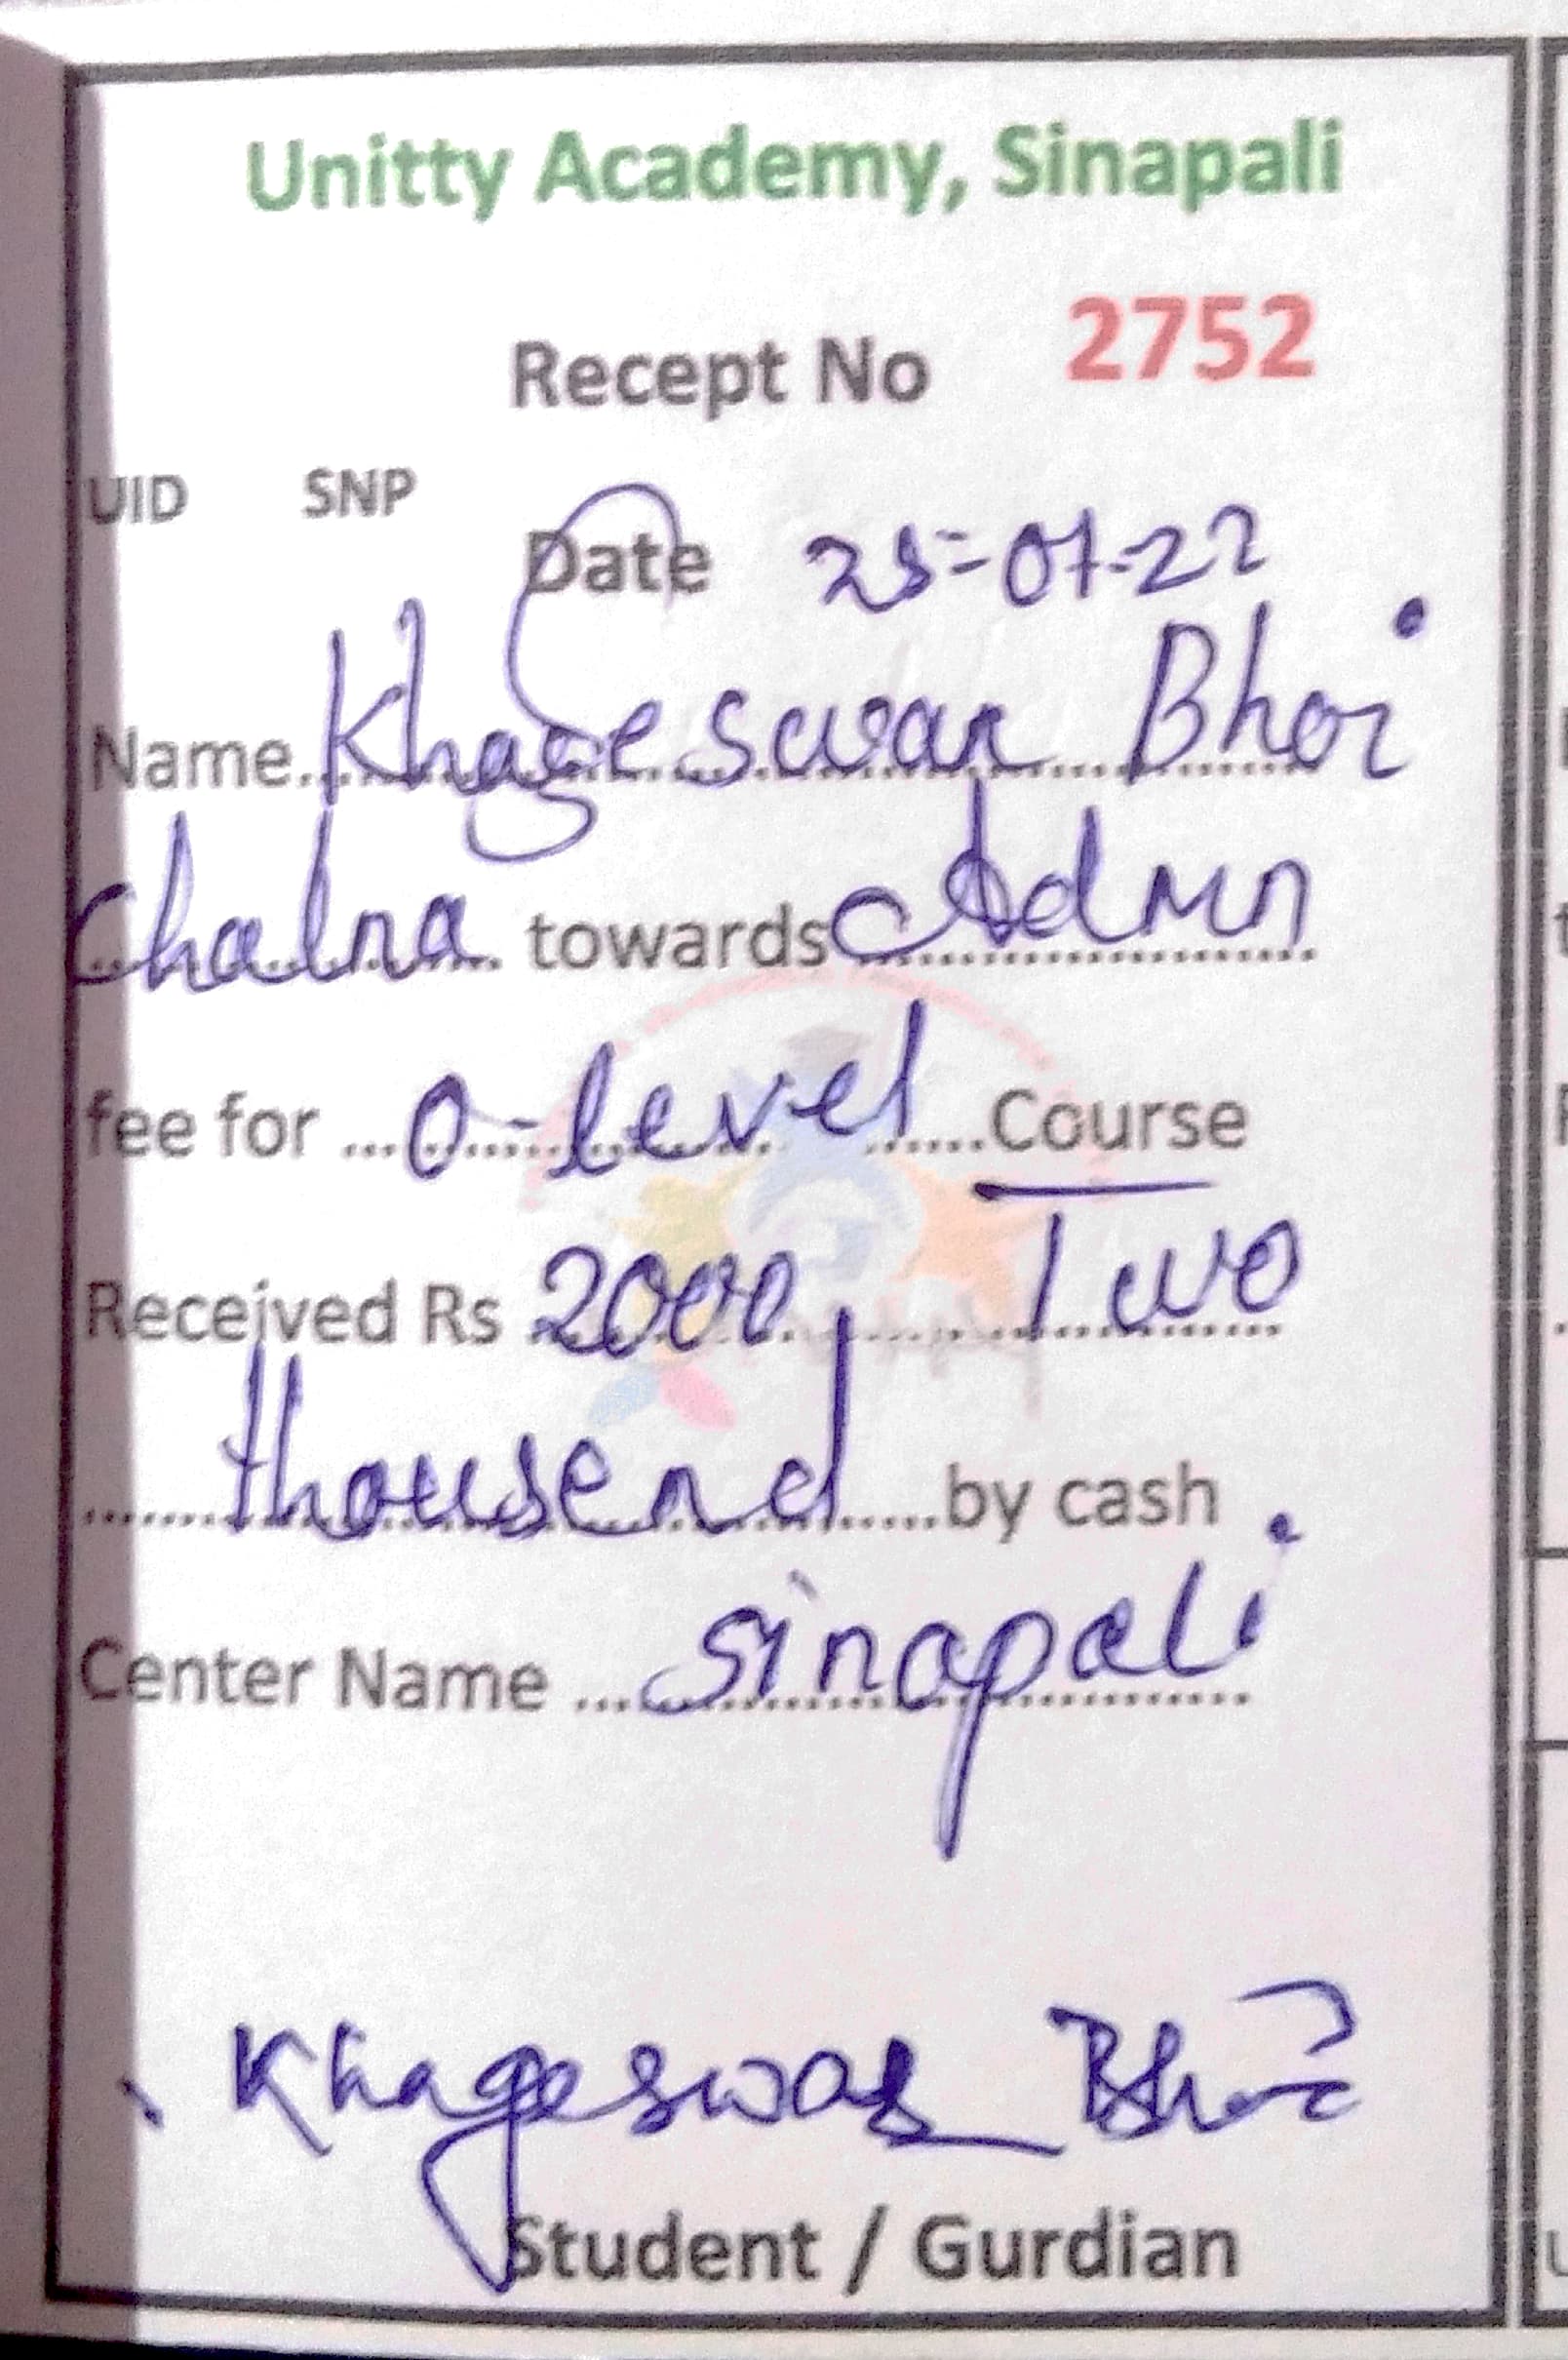 Unitty Academy, Sinapali
Recept No 2752
UID SNP
Date 25-07-22
Name Khageswar Bhoi
Chalna towards Admn
fee for ...0-level......Course
Received Rs 2000, Two
thousend by cash
Center Name ... Sinapali
Khageswar Bhoi
Student / Gurdian